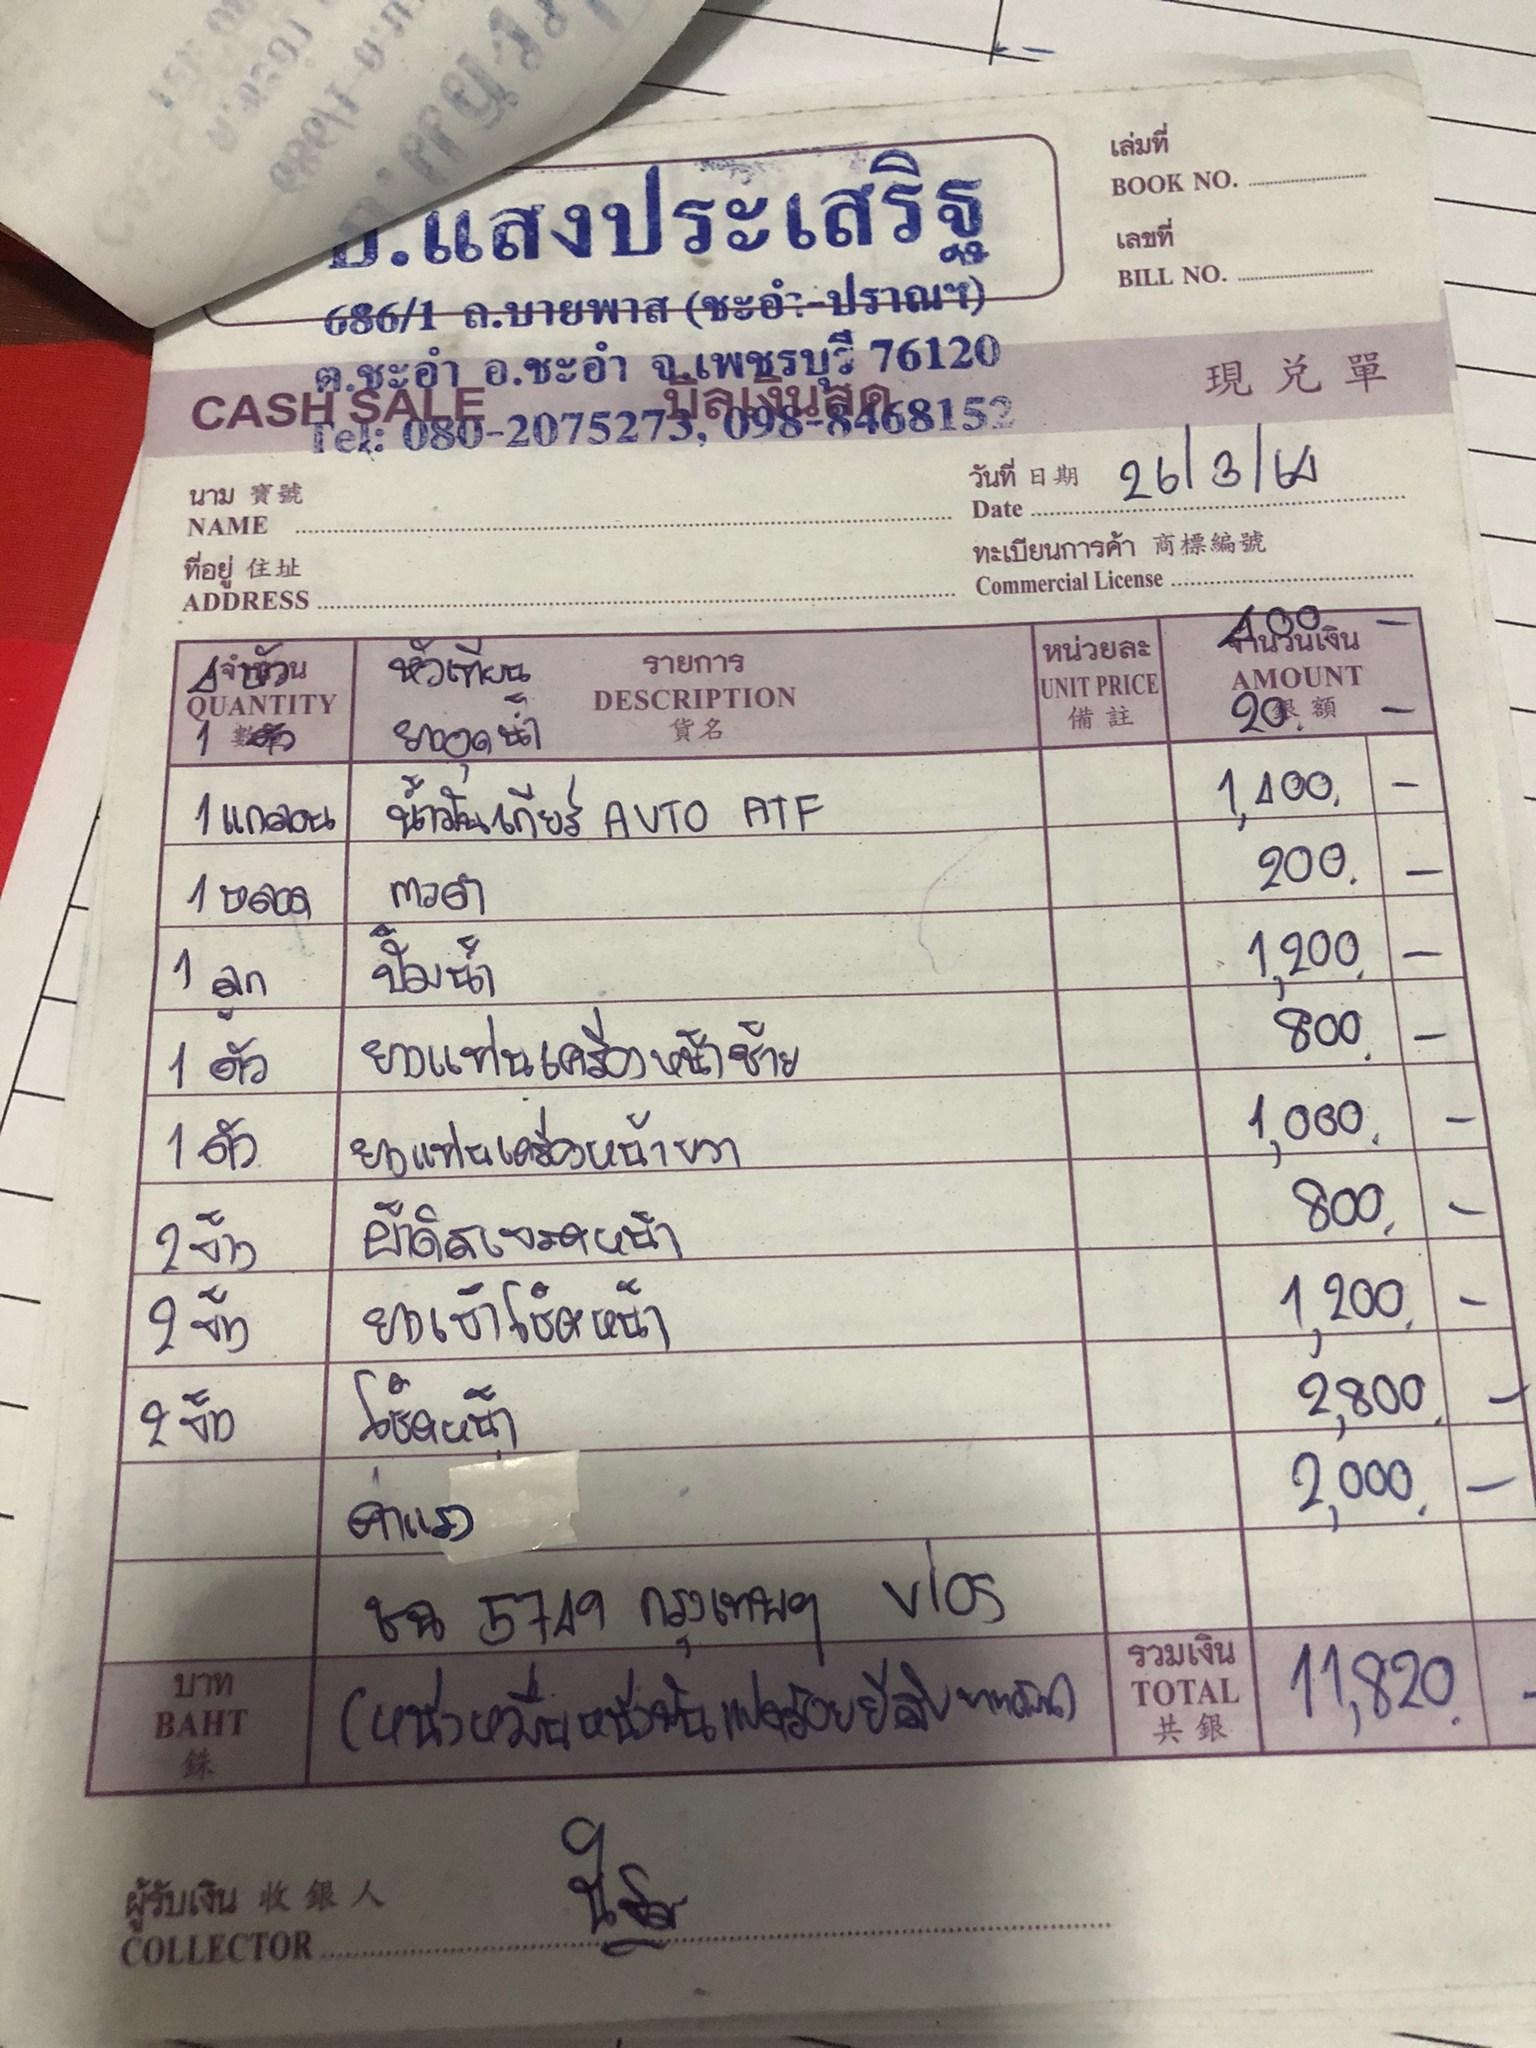 อ.แสงประเสริฐ
686/1 ถ.บายพาส (ชะอำ-ปราณฯ)
ต.ชะอำ อ.ชะอำ จ.เพชรบุรี 76120
Tel: 080-2075273, 098-8468152
เล่มที่
BOOK NO.
เลขที่
BILL NO.
CASH SALE บิลเงินสด 現兌單
นาม 寶號
NAME
วันที่ 日期 26/3/64
Date
ที่อยู่ 住址
ADDRESS
ทะเบียนการค้า 商標編號
Commercial License
จำนวน รายการ หน่วยละ จำนวนเงิน
QUANTITY DESCRIPTION UNIT PRICE AMOUNT
數 貨名 備註 銀額
4 หัว หัวเทียน 400 -
1 ตัว ยางอุดน้ำ 20. -
1 แกลอน น้ำมันเกียร์ AUTO ATF 1,400. -
1 หลอด กาวดำ 200. -
1 ลูก ปั๊มน้ำ 1,200. -
1 ตัว ยางแท่นเครื่องหน้าซ้าย 800. -
1 ตัว ยางแท่นเครื่องหน้าขวา 1,000. -
2 ข้าง ผ้าดิสเบรคหน้า 800. -
2 ข้าง ยางเบ้าโช๊คหน้า 1,200. -
2 ข้าง โช๊คหน้า 2,800. -
ค่าแรง 2,000. -
ชฉ 5749 กรุงเทพฯ VIOS
บาท
BAHT
銖
(หนึ่งหมื่นหนึ่งพันแปดร้อยยี่สิบบาทถ้วน)
รวมเงิน
TOTAL 11,820. -
共銀
ผู้รับเงิน 收銀人
COLLECTOR